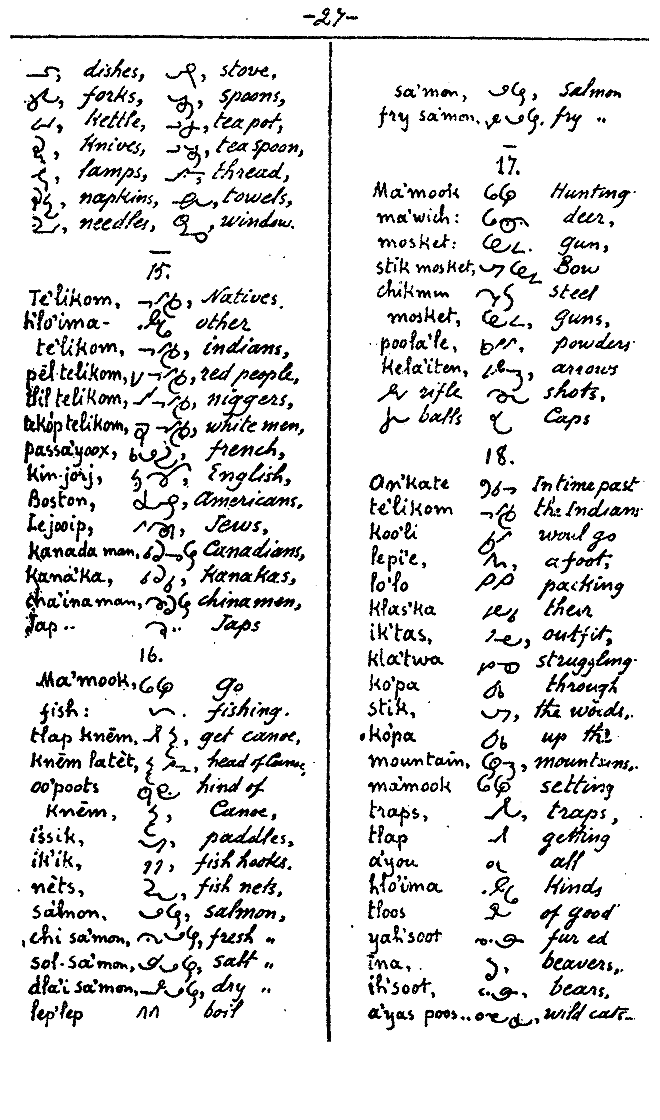 -27-
dishes, stove,
forks, spoons,
kettle, tea pot,
knives, tea spoon,
lamps, thread,
napkins, towels,
needles, window.
15.
Te'likom, Natives.
h'lo'ima- other
te'likom, indians,
pel telikom, red people,
tlil telikom, niggers,
tekop telikom, white men,
passa'yoox, french,
Kin-jorj, English,
Boston, Americans,
Lejooip, Jews,
Kanada man, Canadians,
Kana'ka, Kanakas,
cha'ina man, china men,
Jap " " Japs
16.
Ma'mook, go
fish: fishing.
tlap knēm, get canoe,
knēm latēt, head of Canoe,
oo'poots hind of
knēm, Canoe,
issik, paddles,
ik'ik, fish hooks.
nets, fish nets,
sa'mon, salmon,
chi sa'mon, fresh "
sol-sa'mon, salt "
dla'i sa'mon, dry "
lep'lep boil
sa'mon, salmon
fry sa'mon, fry "
17.
Ma'mook Hunting
ma'wich: deer,
mosket: gun,
stik mosket, Bow
chikmin steel
mosket, guns,
poola'le, powders
kela'iten, arrows
rifle shots,
balls Caps
18.
An'kate In time past
te'likom the Indians
koo'li woul go
lepi'e, a foot,
lo'lo packing
klas'ka their
ik'tas, outfit,
kla'twa struggling
ko'pa through
stik, the woods,
ko'pa up the
mountain, mountains,
ma'mook setting
traps, traps,
tlap getting
a'you all
h'lo'ima Kinds
tloos of good
yah'soot fur ed
ina, beavers,
ih'soot, bears,
a'yas poos wild cats